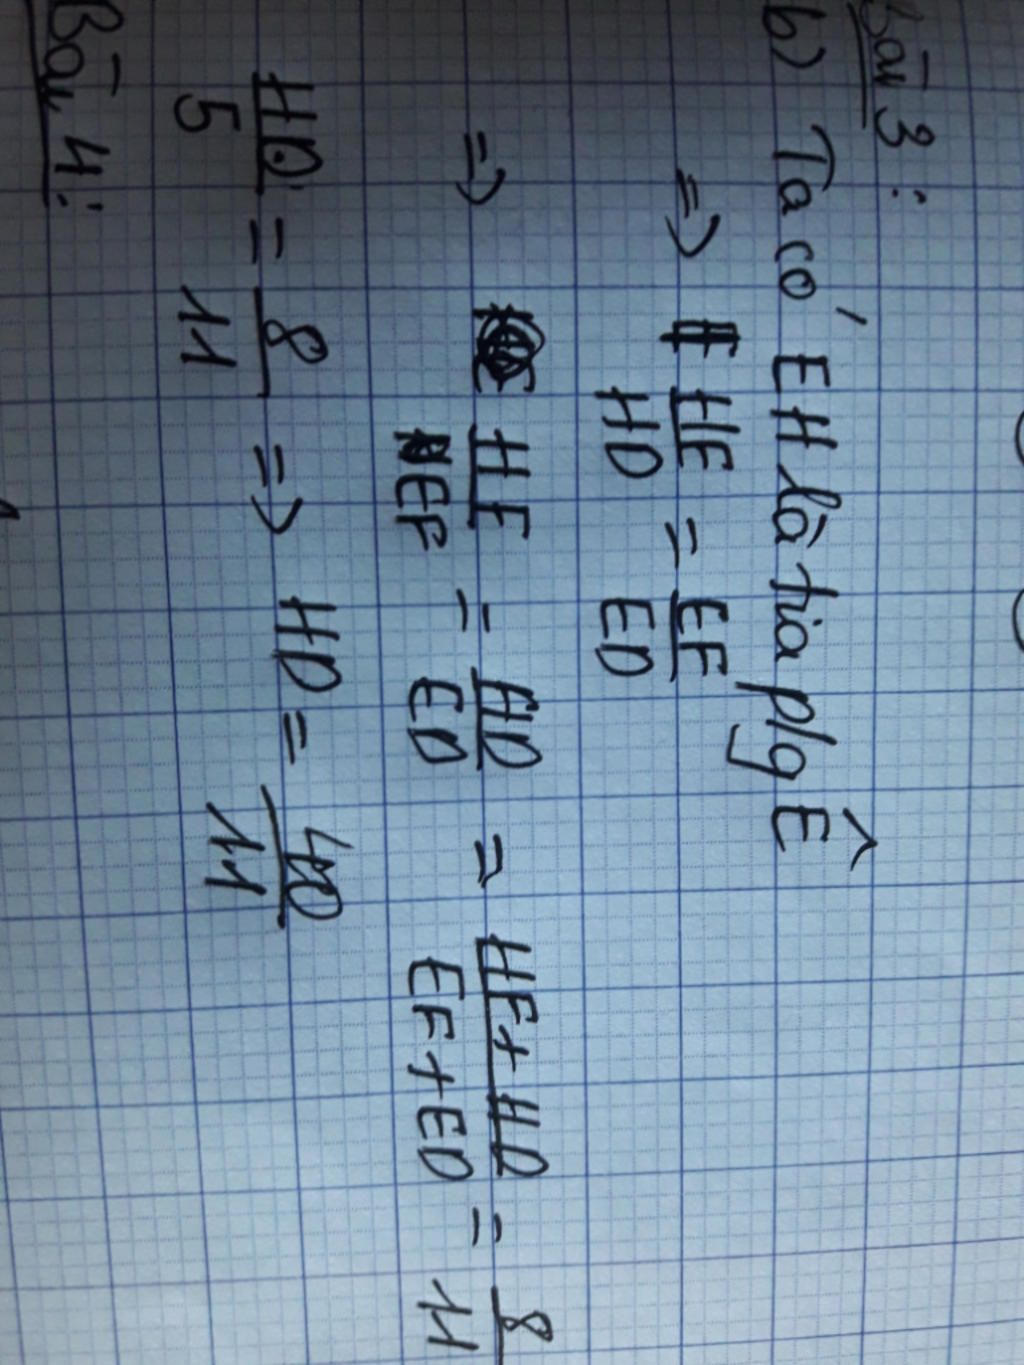 Bài 3:
b) Ta có EH là tia p/g Ê
=> HF/HD = EF/ED
=> HF/EF = HD/ED = HF+HD/EF+ED = 8/11
HD/5 = 8/11 => HD = 40/11
Bài 4: